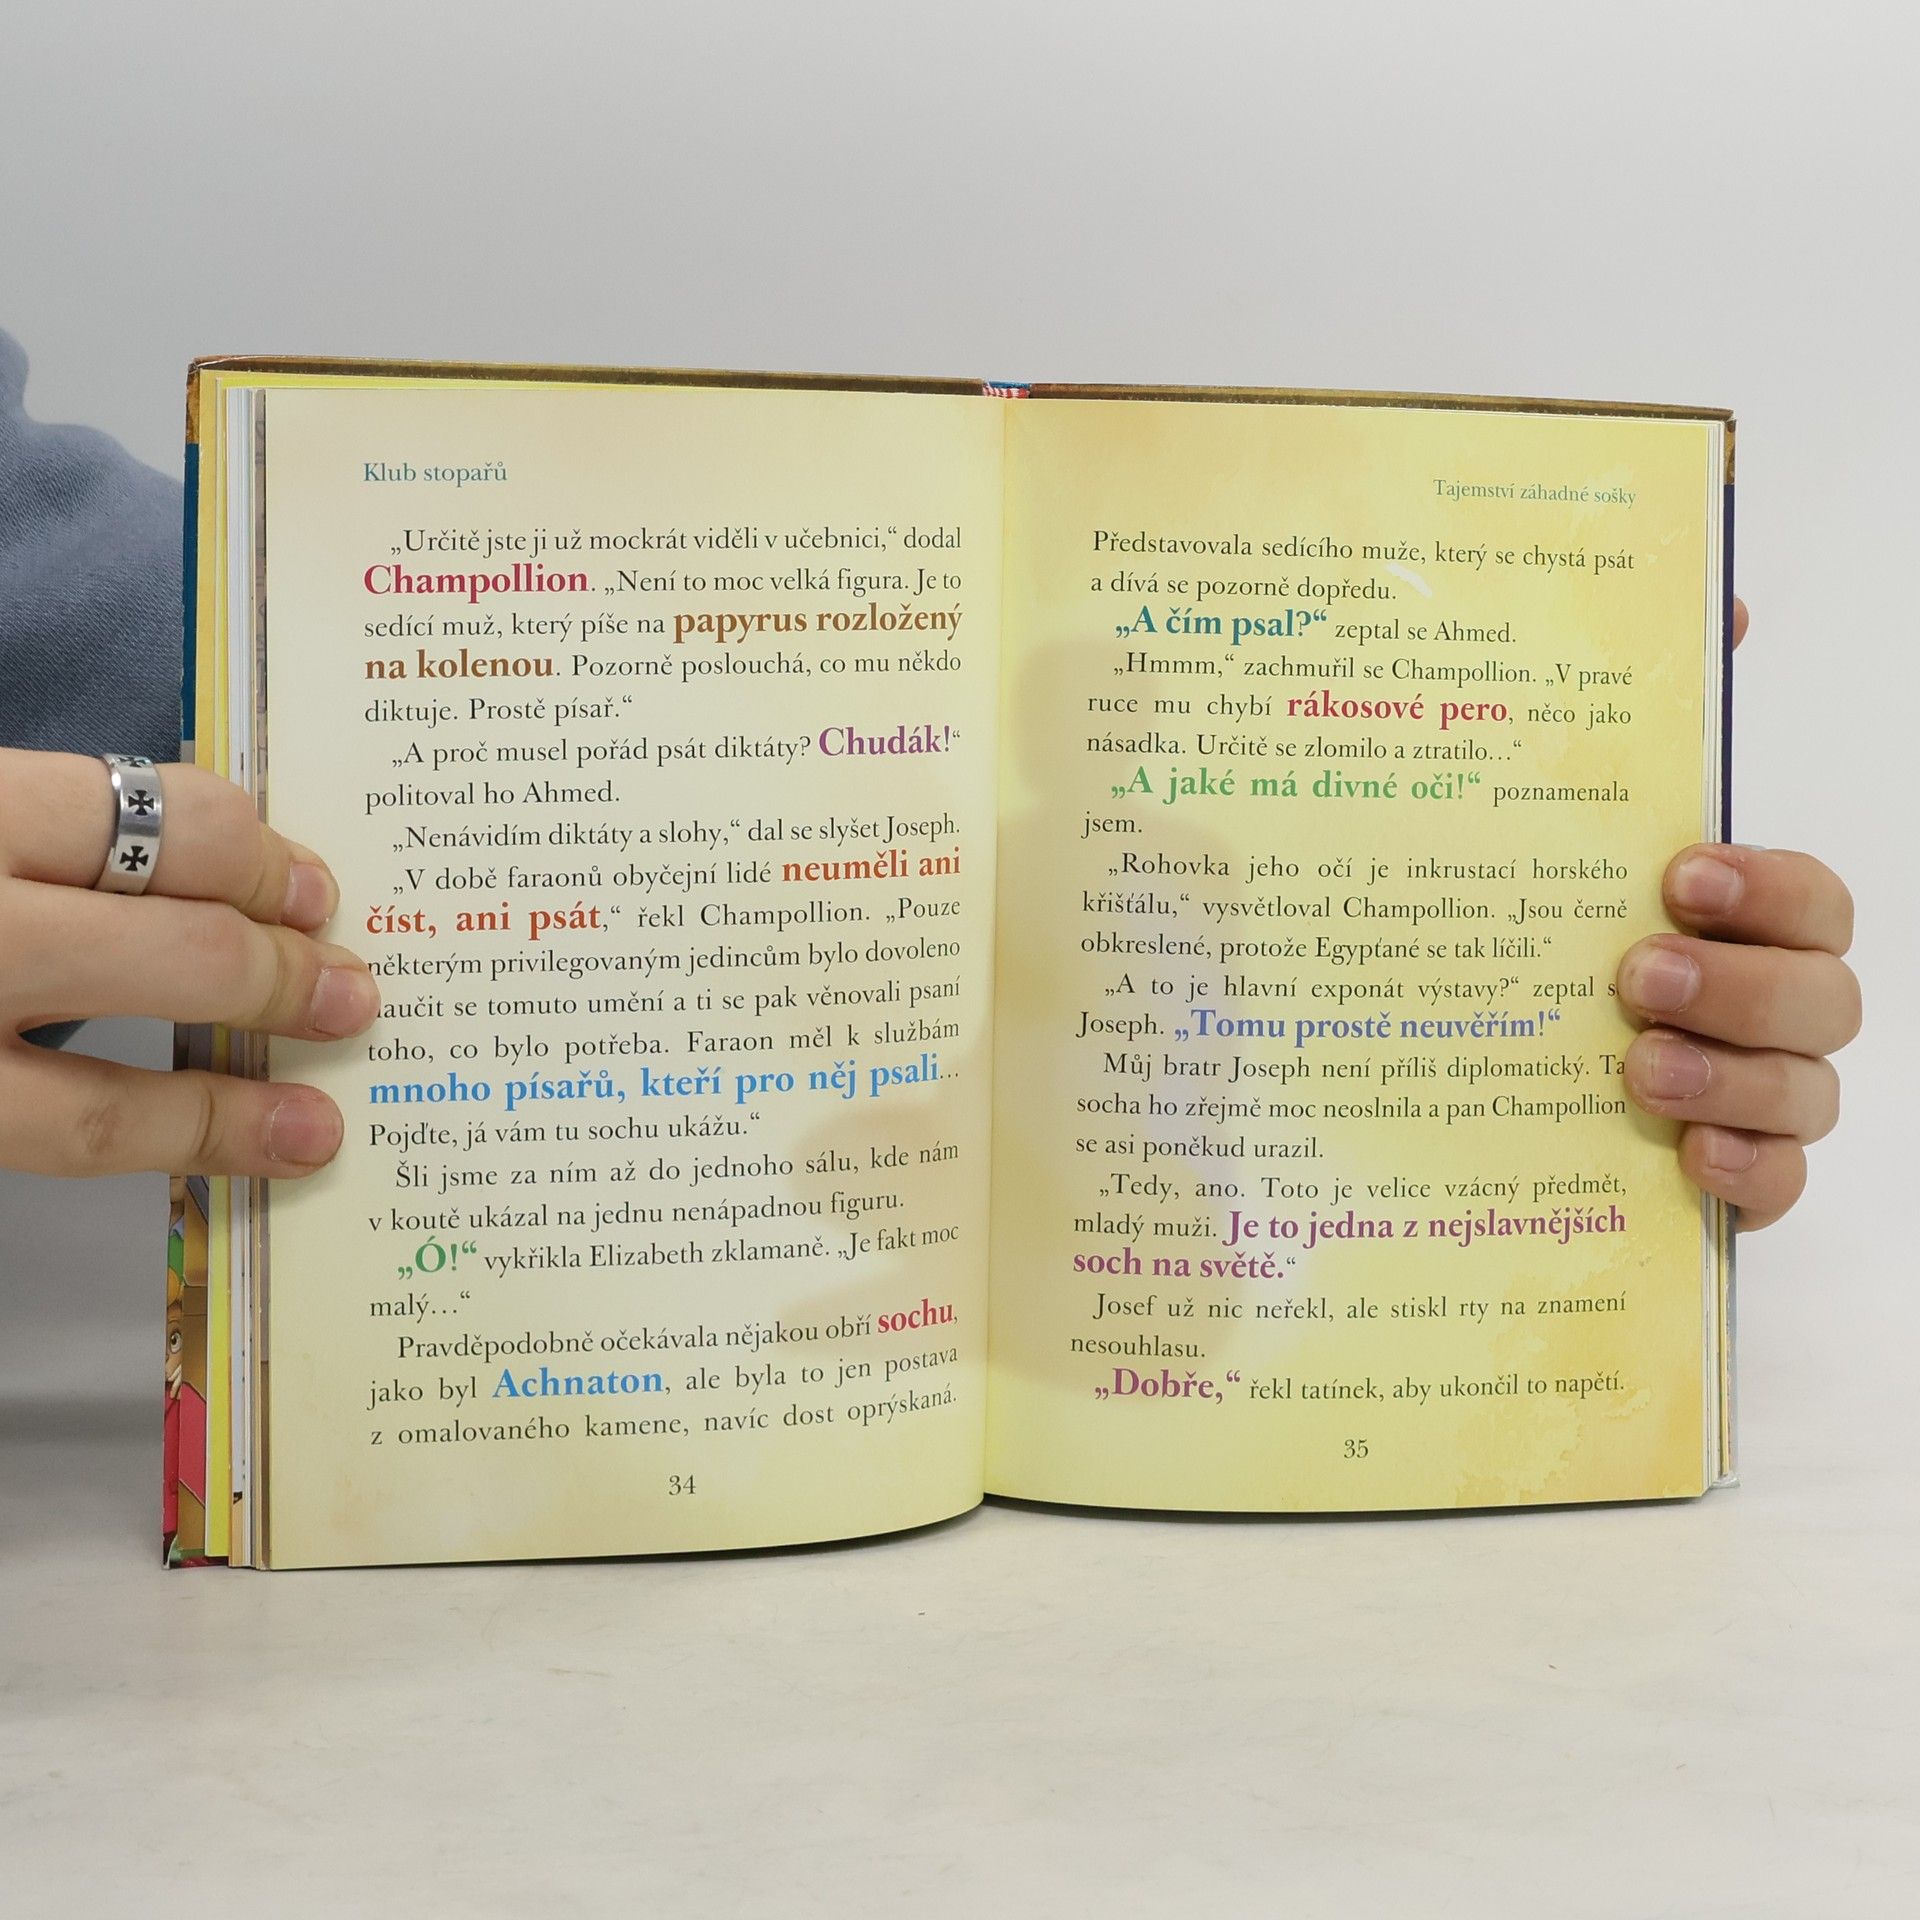 Klub stopařů
„Určitě jste ji už mockrát viděli v učebnici,“ dodal
Champollion. „Není to moc velká figura. Je to
sedící muž, který píše na papyrus rozložený
na kolenou. Pozorně poslouchá, co mu někdo
diktuje. Prostě písař.“
„A proč musel pořád psát diktáty? Chudák!“
politoval ho Ahmed.
„Nenávidím diktáty a slohy,“ dal se slyšet Joseph.
„V době faraonů obyčejní lidé neuměli ani
číst, ani psát,“ řekl Champollion. „Pouze
některým privilegovaným jedincům bylo dovoleno
naučit se tomuto umění a ti se pak věnovali psaní
toho, co bylo potřeba. Faraon měl k službám
mnoho písařů, kteří pro něj psali…
Pojďte, já vám tu sochu ukážu.“
Šli jsme za ním až do jednoho sálu, kde nám
v koutě ukázal na jednu nenápadnou figuru.
„Ó!“ vykřikla Elizabeth zklamaně. „Je fakt moc
malý…“
Pravděpodobně očekávala nějakou obří sochu,
jako byl Achnaton, ale byla to jen postava
z omalovaného kamene, navíc dost oprýskaná.
34
Tajemství záhadné sošky
Představovala sedícího muže, který se chystá psát
a dívá se pozorně dopředu.
„A čím psal?“ zeptal se Ahmed.
„Hmmm,“ zachmuřil se Champollion. „V pravé
ruce mu chybí rákosové pero, něco jako
násadka. Určitě se zlomilo a ztratilo…“
„A jaké má divné oči!“ poznamenala
jsem.
„Rohovka jeho očí je inkrustací horského
křišťálu,“ vysvětloval Champollion. „Jsou černě
obkreslené, protože Egypťané se tak líčili.“
„A to je hlavní exponát výstavy?“ zeptal se
Joseph. „Tomu prostě neuvěřím!“
Můj bratr Joseph není příliš diplomatický. Ta
socha ho zřejmě moc neoslnila a pan Champollion
se asi poněkud urazil.
„Tedy, ano. Toto je velice vzácný předmět,
mladý muži. Je to jedna z nejslavnějších
soch na světě.“
Josef už nic neřekl, ale stiskl rty na znamení
nesouhlasu.
„Dobře,“ řekl tatínek, aby ukončil to napětí.
35